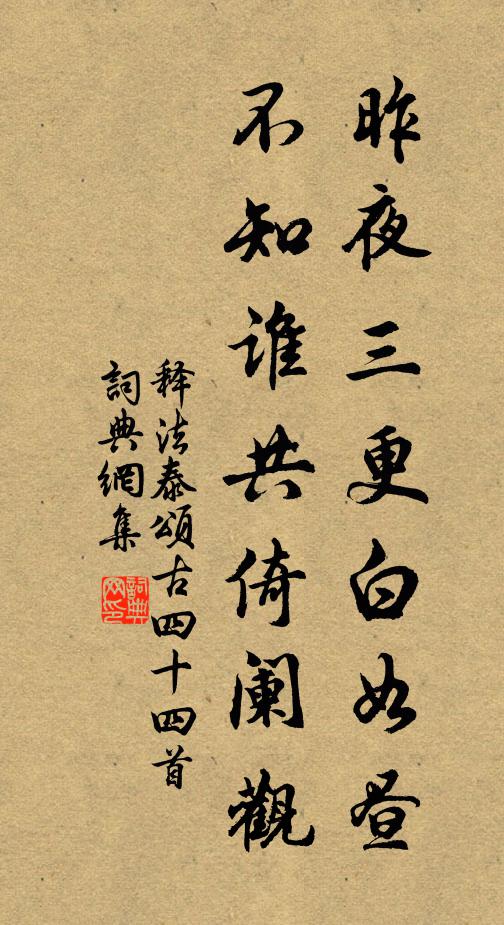 昨夜三更白如昼
不知谁共倚阑觀
释法泰頌古四十四首
詞典網集
詞典网印